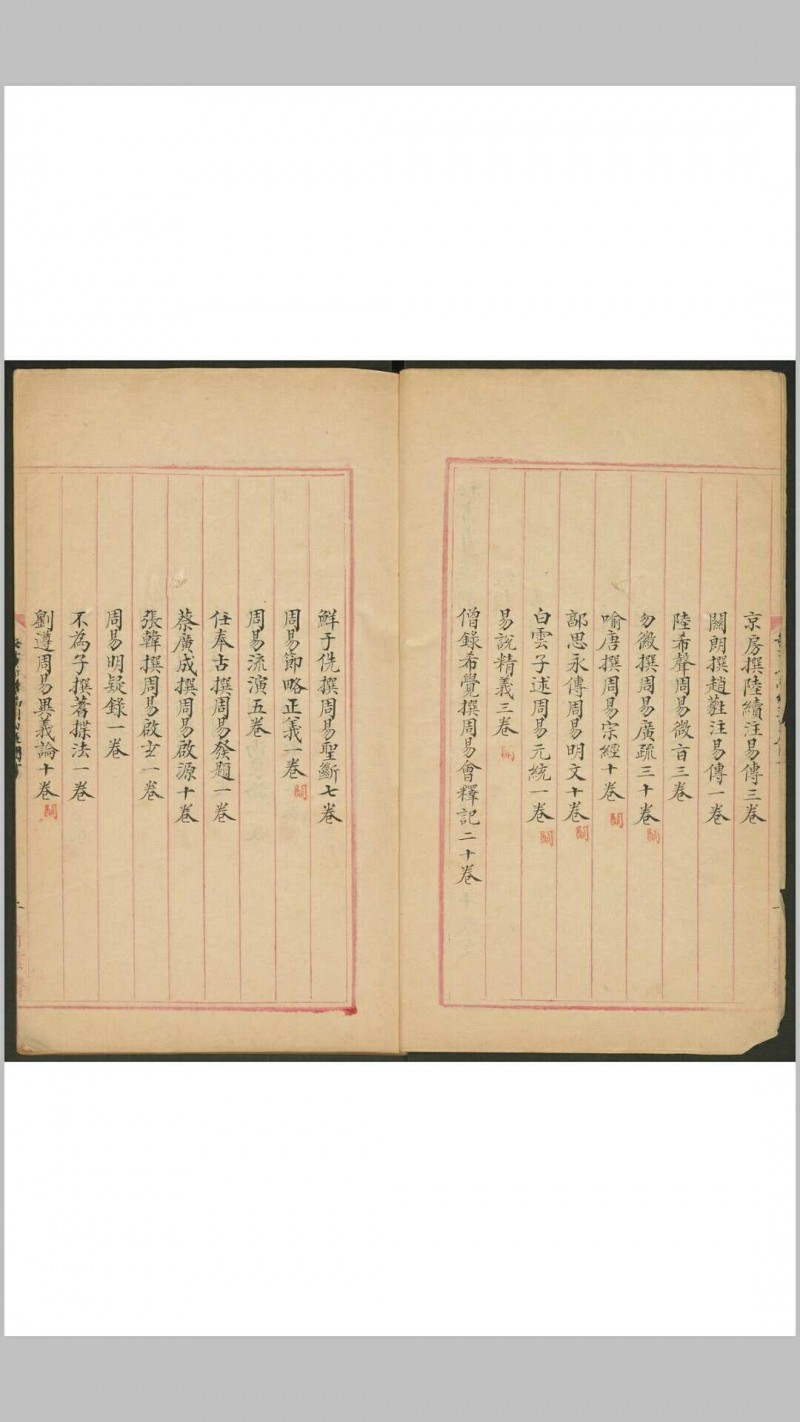 京房撰陸績注易傳三卷
關朗撰趙蕤注易傳一卷
陸希聲周易微旨三卷
勿微撰周易廣疏三十卷闕
喻唐撰周易宗經十卷闕
郭思永傳周易明文十卷闕
白雲子述周易元統一卷闕
易說精義三卷闕
僧錄希覺撰周易會釋記二十卷
鮮于侁撰周易聖斷七卷
周易節略正義一卷闕
周易流演五卷
任奉古撰周易發題一卷
蔡廣成撰周易啟源十卷
張韓撰周易啟玄一卷
周易明疑錄一卷
不為子撰蓍揲法一卷
劉遵周易異義論十卷闕